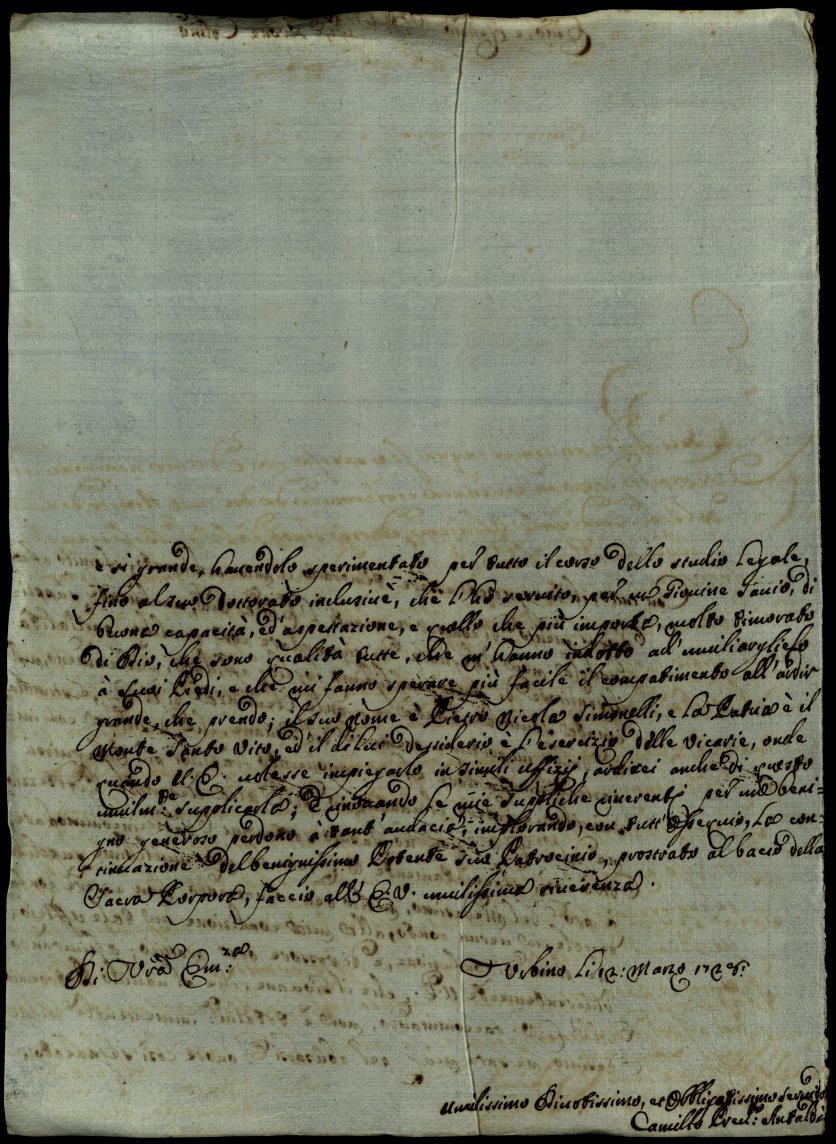 è si grande, hauendolo sperimentato per tutto il corso dello studio legale,
fino al suo Dottorato inclusiuè, che l'hò seruito, per un Giouine sauio, di
buona capacità, ed'aspettazione, e quello che più importa, molto timorato
di Dio, che sono qualità tutte, che m'hanno indotto ad'umiliarglielo
à suoi Piedi, e che mi fanno sperare più facile il compatimento all'ardir
grande, che prendo; il suo nome è Pietro Nicola Simonelli, e la Patria è il
Monte Santo Vito, ed'il di lui desiderio è l'esercizio delle Vicarie, onde
quando V: E: uolesse impiegarlo in simili uffizij, ardirei anche di questo
umilm:te supplicarla; Rinouando le mie suppliche riuerenti per un beni-
gno generoso perdono à tant'audacia, implorando, con tutt'ossequio, la con-
tinuazione del benignissimo Potente suo Patrocinio, prostrato al bacio della
Sacra Porpora, faccio all'E: V: umilissima riuerenza.
Di Vra Em:za
Vrbino li 12: Marzo 172
Umilissimo Diuotissimo, et Obbligatissimo Seruido
Camillo Antaldi